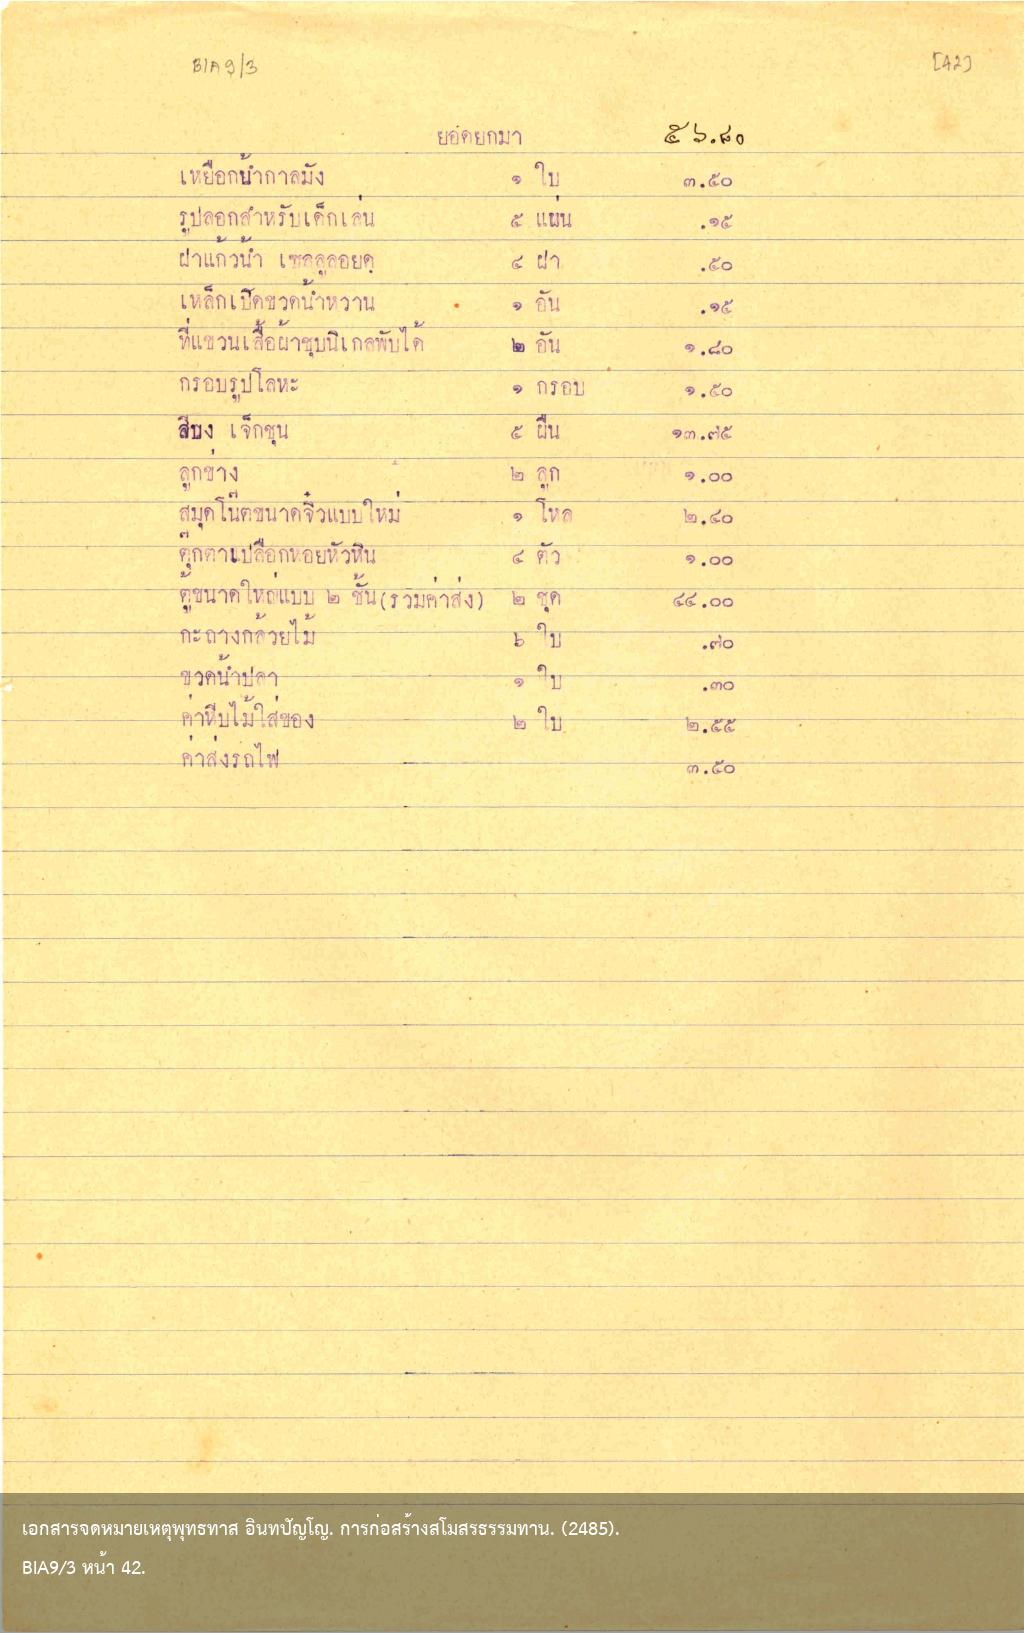 BIA9/3 [42]
ยอดยกมา ๕๖.๘๐
เหยือกน้ำกาลมัง ๑ ใบ ๓.๕๐
รูปลอกสำหรับเด็กเล่น ๕ แผ่น .๑๕
ฝาแก้วน้ำ เซลลูลอยด ๔ ฝา .๕๐
เหล็กเปิดขวดน้ำหวาน ๑ อัน .๑๕
ที่แขวนเสื้อผ้าชุบนิเกลพับได้ ๒ อัน ๑.๘๐
กรอบรูปโลหะ ๑ กรอบ ๑.๕๐
สีบง เจ็กชุน ๕ ผืน ๑๓.๗๕
ลูกข่าง ๒ ลูก ๑.๐๐
สมุดโน๊ตขนาดจิ๋วแบบใหม่ ๑ โหล ๒.๔๐
ตุ๊กตาเปลือกหอยหัวหิน ๔ ตัว ๑.๐๐
ตู้ขนาดใหญ่แบบ ๒ ชั้น(รวมค่าส่ง) ๒ ชุด ๔๔.๐๐
กะถางกล้วยไม้ ๖ ใบ .๗๐
ขวดน้ำปลา ๑ ใบ .๓๐
ค่าหีบไม้ใส่ของ ๒ ใบ ๒.๕๕
ค่าส่งรถไฟ ๓.๕๐
เอกสารจดหมายเหตุพุทธทาส อินทปัญโญ. การก่อสร้างสโมสรธรรมทาน. (2485).
BIA9/3 หน้า 42.